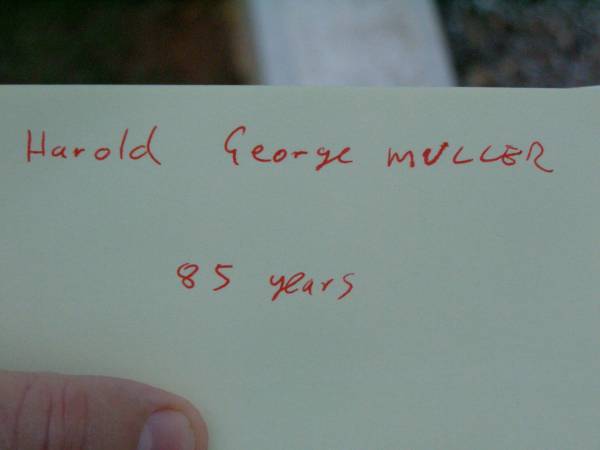 Harold George MULLER
85 years